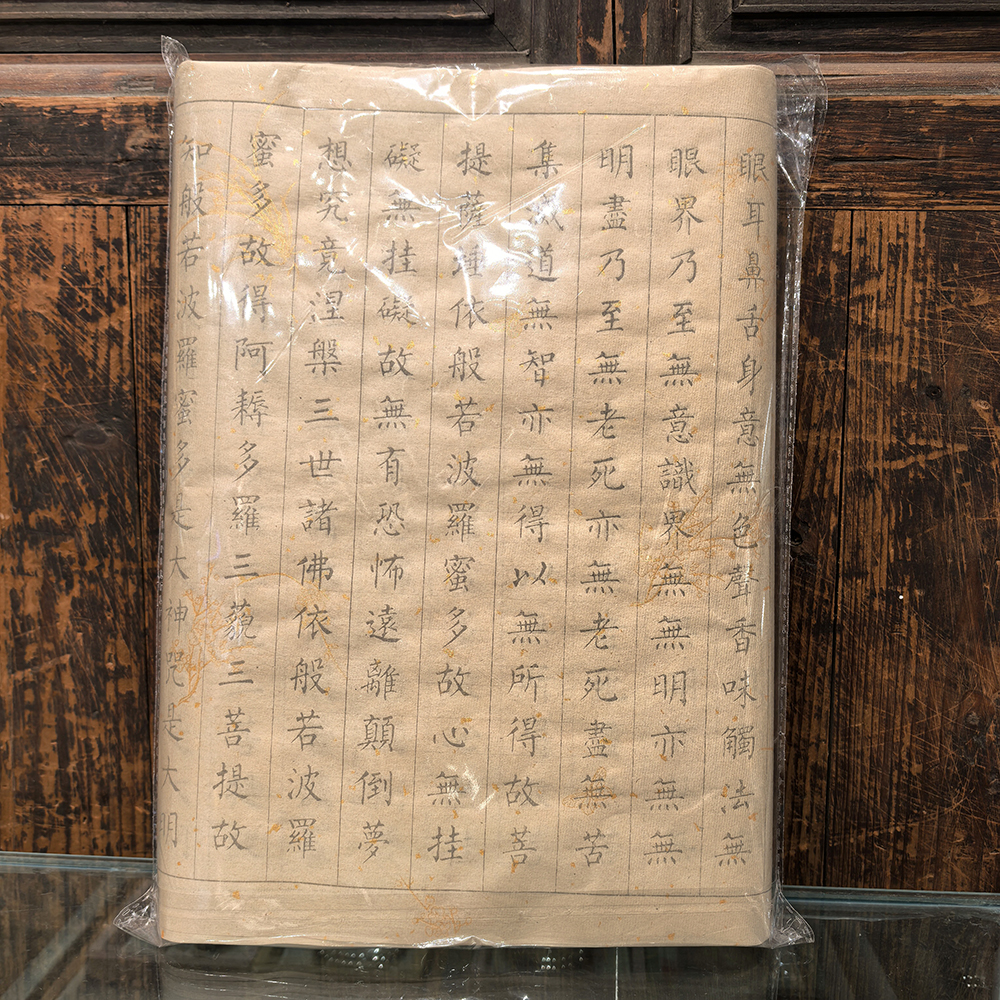 眼耳鼻舌身意無色聲香味觸法無
眼界乃至無意識界無無明亦無無
明盡乃至無老死亦無老死盡無苦
集滅道無智亦無得以無所得故菩
提薩埵依般若波羅蜜多故心無挂
礙無挂礙故無有恐怖遠離顛倒夢
想究竟涅槃三世諸佛依般若波羅
蜜多故得阿耨多羅三藐三菩提故
知般若波羅蜜多是大神咒是大明